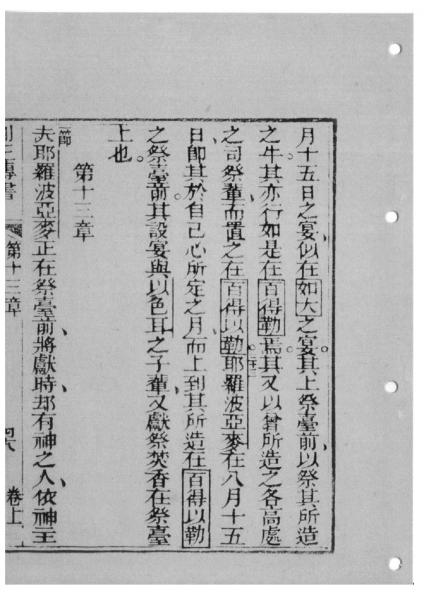 月十五日之宴似在如大之宴其上祭臺前以祭其所造
之牛其亦行如是在百得勒焉其又以曾所造之各高處
之司祭輩而置之在百得以勒三十三耶羅波亞麥在八月十五
日卽其於自己心所定之月而上到其所造在百得以勒
之祭臺前其設宴與以色耳之子輩又獻祭焚香在祭臺
上也
第十三章
節
夫耶羅波亞麥正在祭臺前將獻時却有神之人依神主
列王傳書 第十三章 卷上